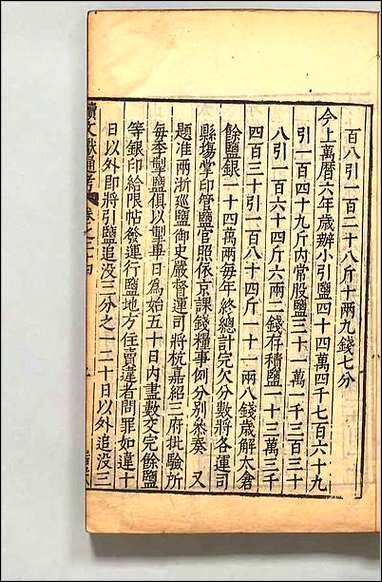 百八引一百二十八斤十兩九錢七分
今上萬曆六年歲辦小引鹽四十四萬四千七百六十九
引一百四十九斤内常股鹽三十一萬一千三百三十
八引一百六十四斤六兩二錢存積鹽一十三萬三千
四百三十引一百八十四斤一十一兩八錢歲解太倉
餘鹽銀一十四萬兩每年終總計完欠分數將各運司
縣塲掌印管鹽官照依京課錢糧事例分别叅奏 又
題准兩浙巡鹽御史嚴督運司將杭嘉紹三府批驗所
每季掣鹽俱以掣畢日為始五十日内盡數交完餘鹽
等銀印給限帖發運行鹽地方住賣違者問罪如違十
日以外即將引鹽追没三分之一二十日以外追没三
續文獻通考 卷之二十四